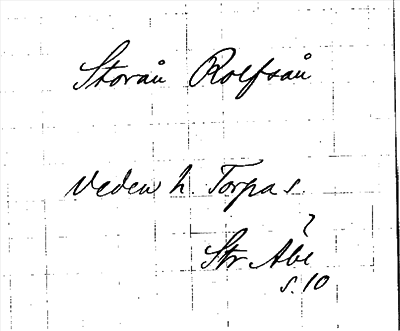 Storån Rolfsån
Veden h. Torpa s.
?
Str Åbe
s. 10